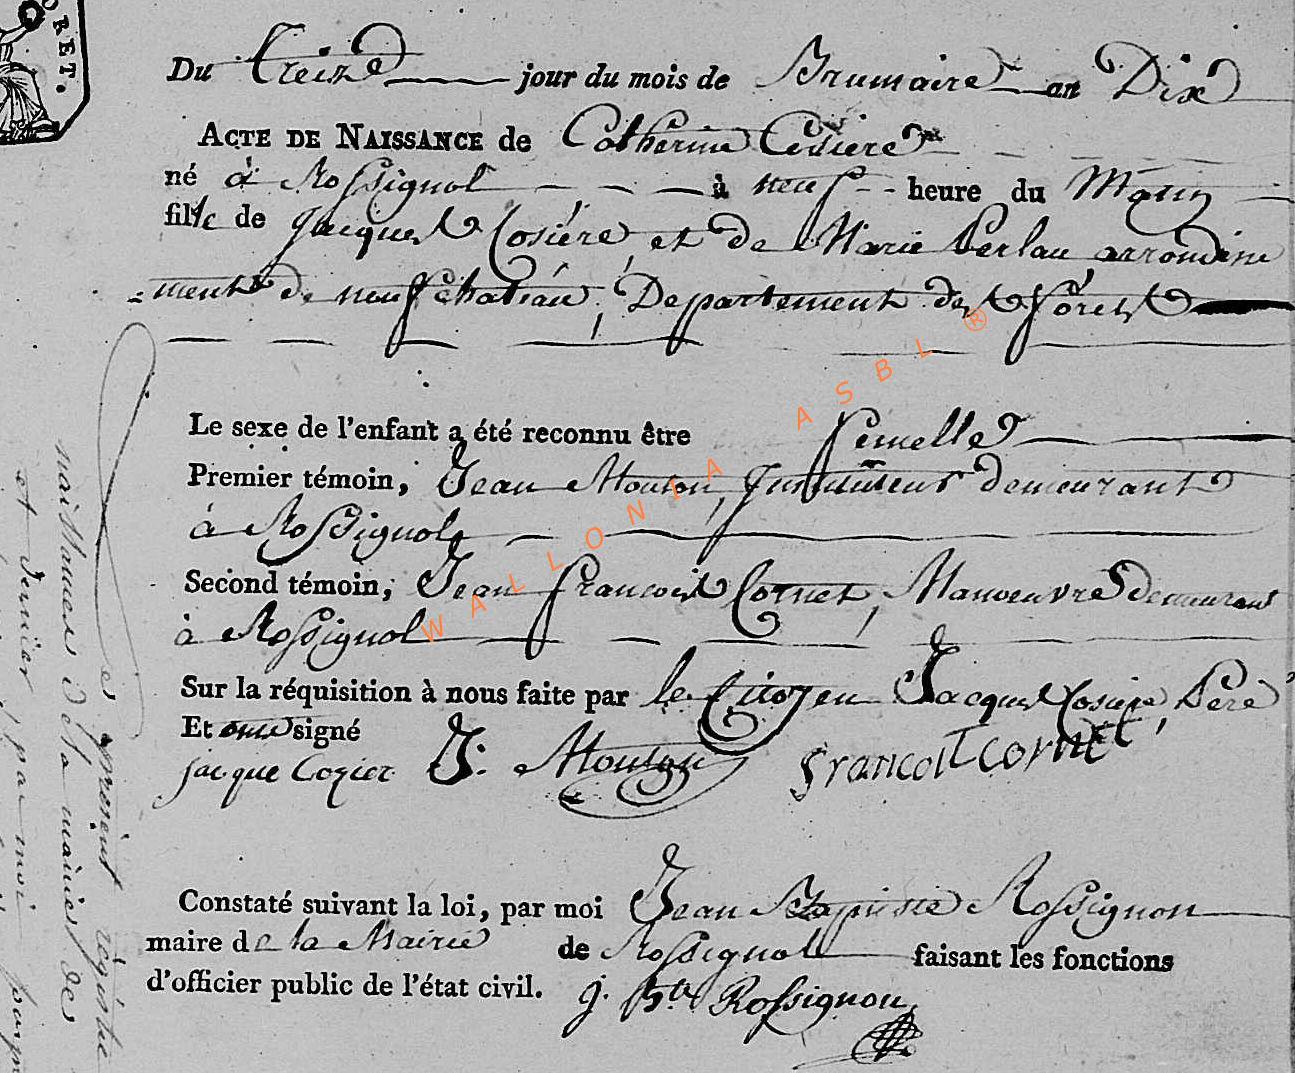 ORET.
Du Treize jour du mois de Brumaire an Dix
ACTE DE NAISSANCE de Catherine Cosiere
né à Rossignol à neuf heure du Matin
fille de Jacques Cosiére, et de Marie Perlau arrondisse
=ment de neufchateau, Departement des forets
Le sexe de l'enfant a été reconnu être femelle
Premier témoin, Jean Mouton, Instituteur demeurant
à Rossignol
Second témoin, Jean francois Cornet, Manoeuvre demeurant
à Rossignol
Sur la réquisition à nous faite par le Citoyen Jacques Cosiere, Pere
Et ont signé
jacque Cozier J. Mouton francoit cornet
Constaté suivant la loi, par moi Jean Baptiste Rossignon
maire de la Mairie de Rossignol faisant les fonctions
d'officier public de l'état civil. j. Bte Rossignon
WALLONIA ASBL ®
présent régistre
naissances de la mairie de
et dernier par moi